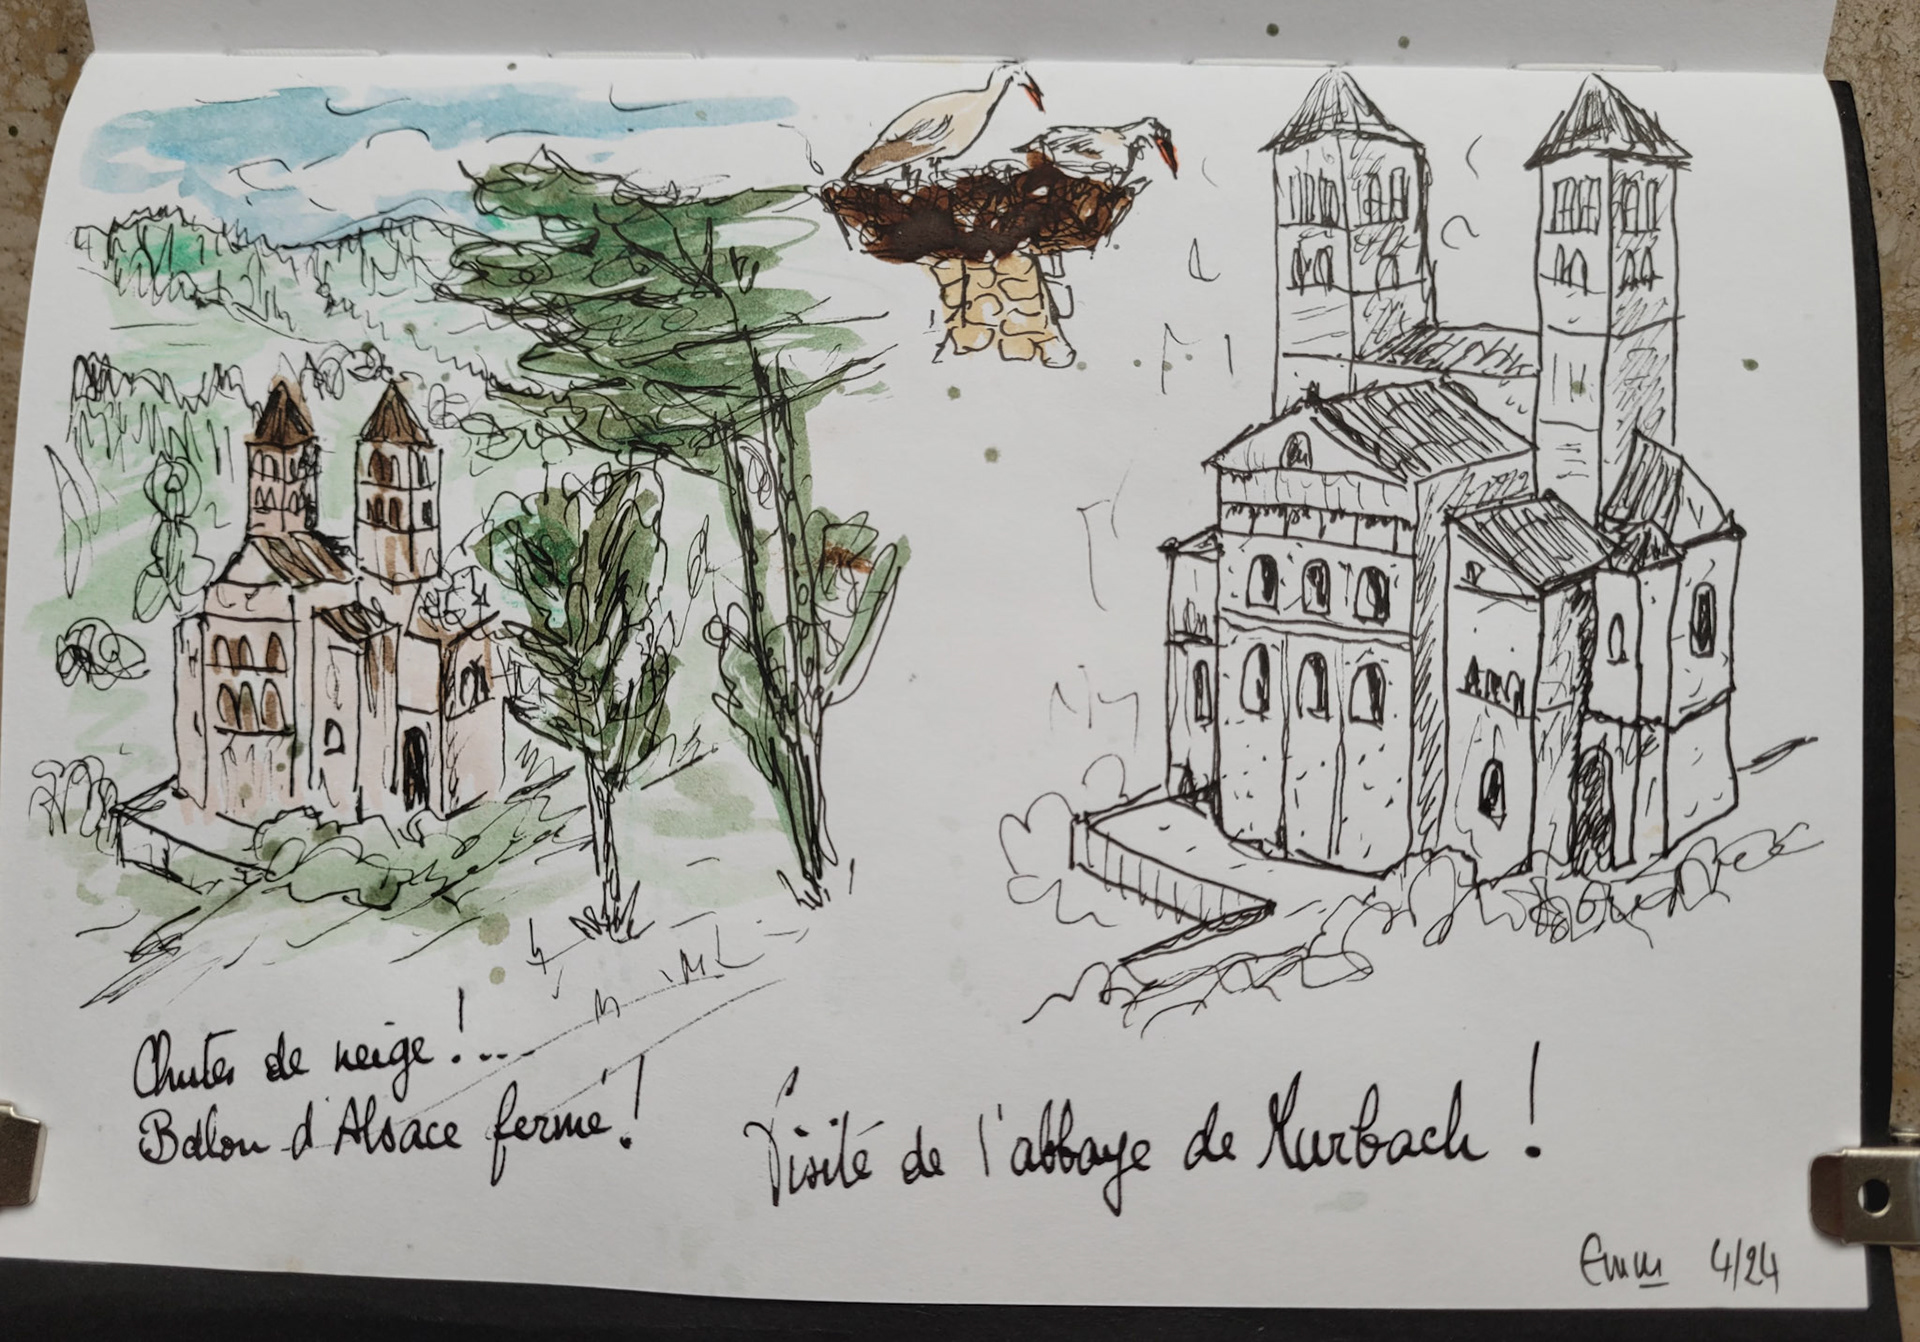 Chutes de neige !...
Balon d'Alsace fermé !
Visite de l'abbaye de Murbach !
Emm 4/24